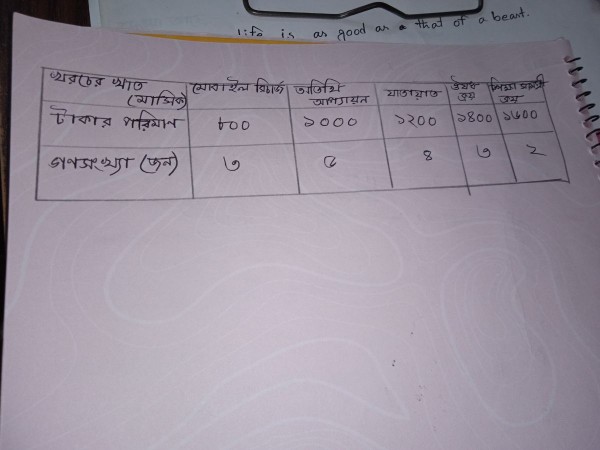 life is as good as a that of a beast.
খরচের খাত (মাসিক) মোবাইল রিচার্জ অতিথি আপ্যায়ন যাতায়াত ঔষধ ক্রয় শিক্ষা সামগ্রী ক্রয়
টাকার পরিমান ৮০০ ১০০০ ১২০০ ১৪০০ ১৬০০
গণসংখ্যা (জন) ৩ ৫ ৪ ৩ ২